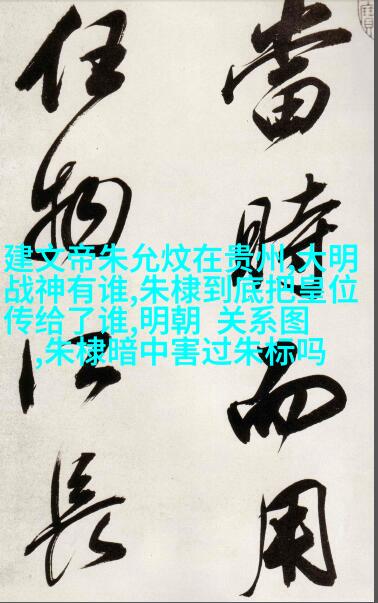 當時而用
任物長
建文帝朱允炆在贵州,大明
战神有谁,朱棣到底把皇位
传给了谁,明朝 关系图
,朱棣暗中害过朱标吗